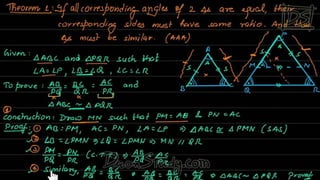 Theorem 1: If all corresponding angles of 2 Δs are equal, their
corresponding sides must have same ratio. And the
Δs must be similar. (AAA)
Given: ΔABC and ΔPQR such that
∠A=∠P, ∠B=∠Q, ∠C=∠R
To prove: AB/PQ = BC/QR = AC/PR and
ΔABC ~ ΔPQR
Construction: Draw MN such that PM=AB & PN=AC
Proof: ① AB=PM, AC=PN, ∠A=∠P ⇒ ΔABC ≅ ΔPMN (SAS)
② ∠B = ∠PMN ⇒ ∠Q = ∠PMN ⇒ MN ∥ QR
③ PM/PQ = PN/PR
④ Similarly, AB/PQ = BC/QR ⇒ AB/PQ = BC/QR = AC/PR ⇒ ΔABC ~ ΔPQR Proved
A
B
C
P
M
N
Q
R